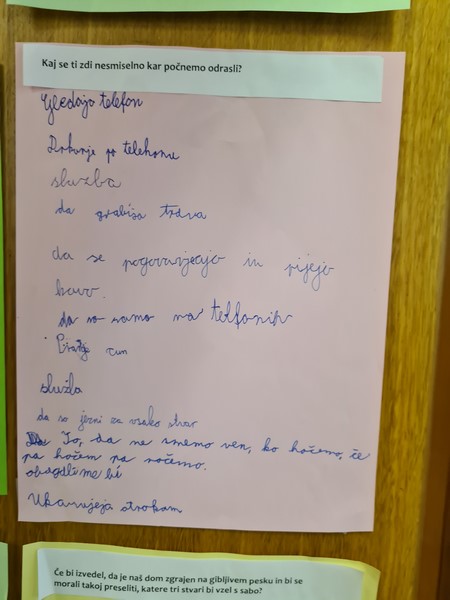 Kaj se ti zdi nesmiselno kar počnemo odrasli?
Gledajo telefon
po telefonu
služba
da grabijo trava
da se pogovarjajo in pijejo
kavo.
da so samo na telfonih
služba
da so jezni za vsako stvar
To, da ne smemo ven, ko hočemo, če
pa hočem pa nočemo.
Ukazujeja otrokom
Če bi izvedel, da je naš dom zgrajen na gibljivem pesku in bi se
morali takoj preseliti, katere tri stvari bi vzel s sabo?